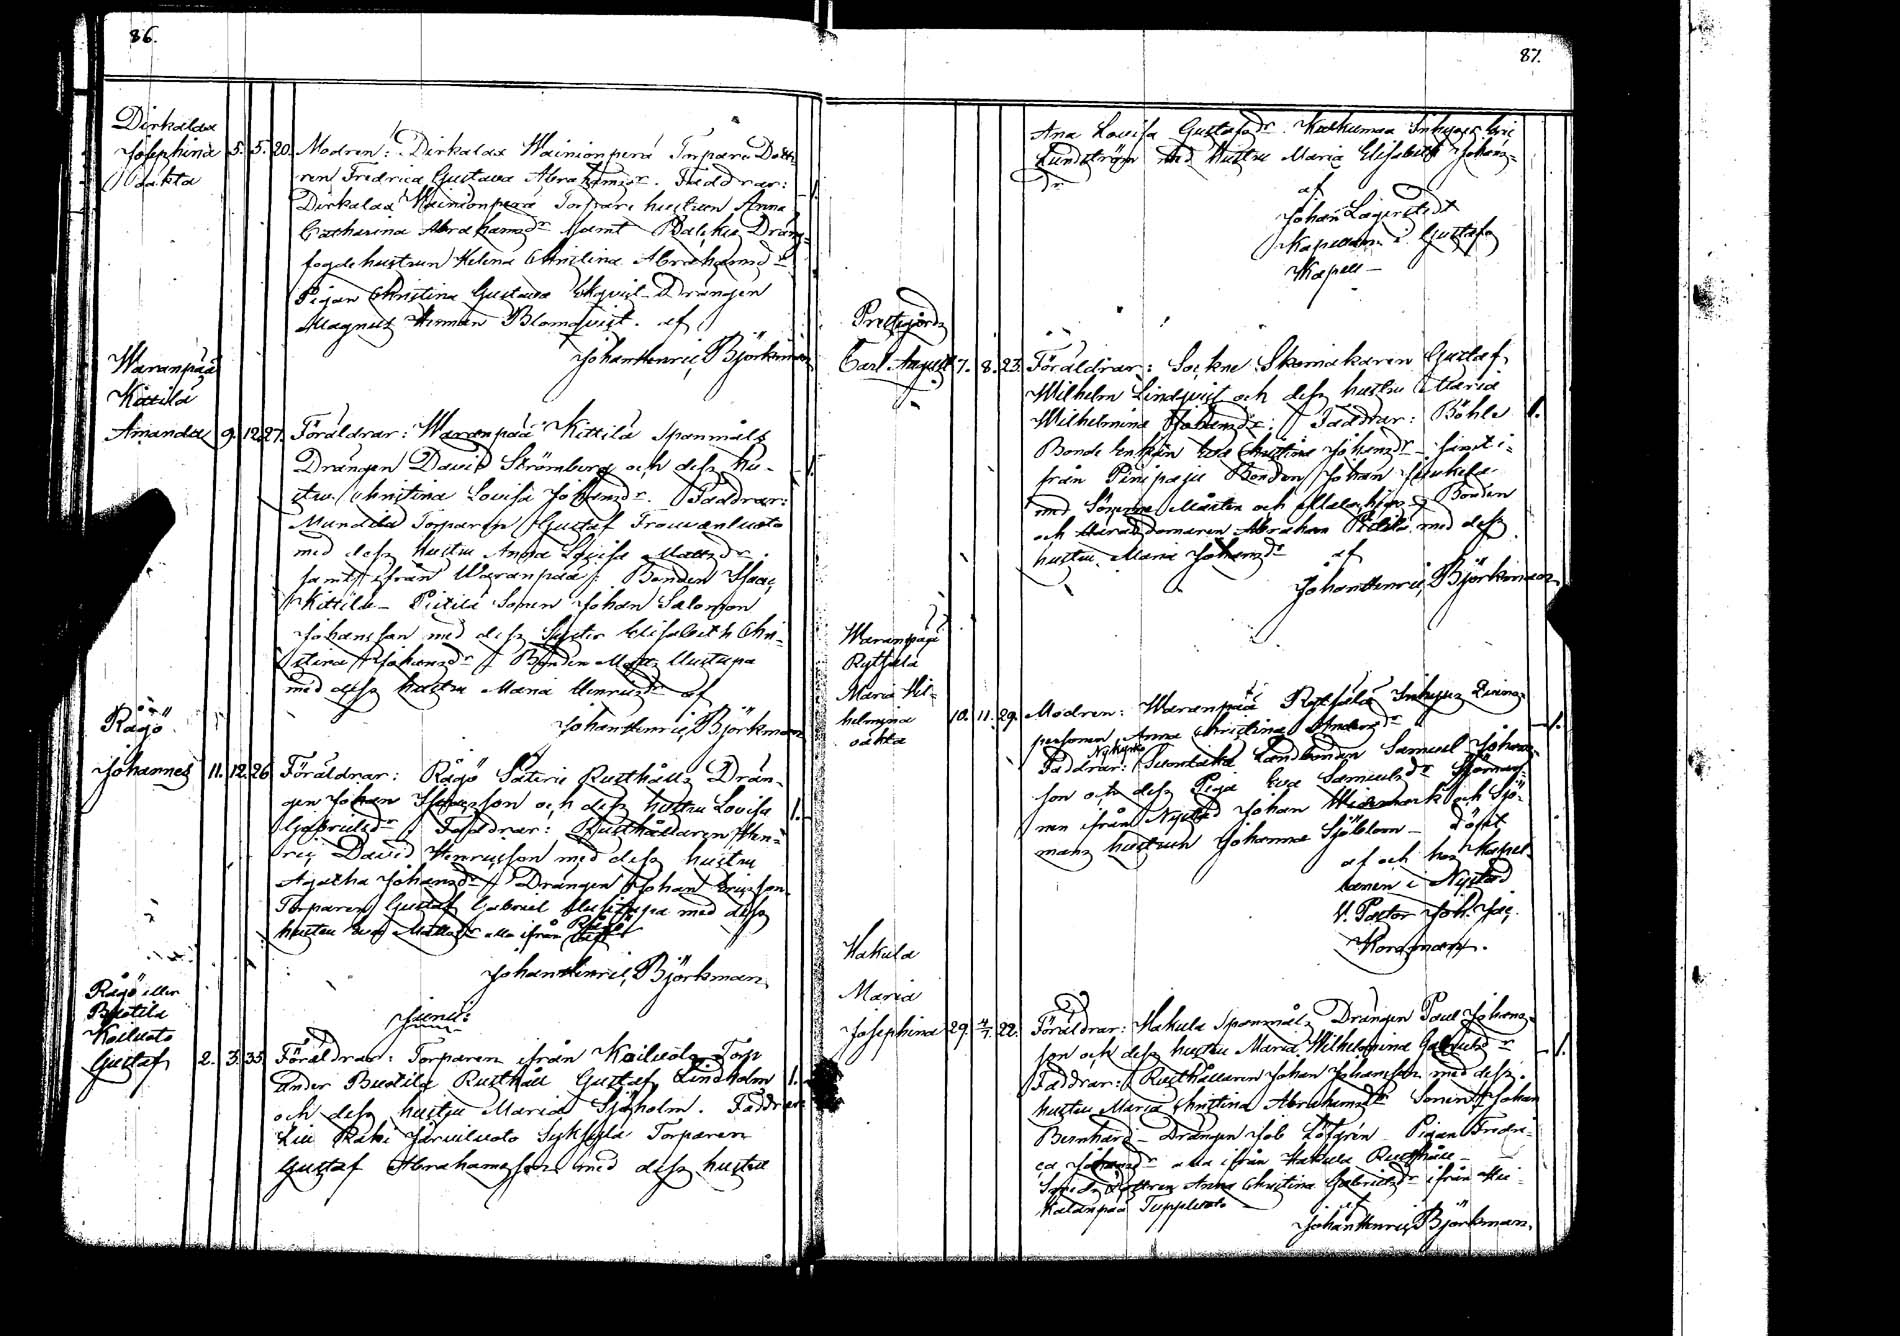 86.
Dirkalax
Josephina 5. 5. 20. Modren: Dirkalax Wainionperä Torpare Dott
oäkta
ren Fredrica Gustava Abrahamsdr. Faddrar: 1.
Dirkalax Wainionperä Torpare hustrun Anna
Catharina Abrahamsdr samt Dräng-
fogdehustrun Helena Christina Abrahamsdr
Pigan Christina Gustava Ekqvist - Drängen
Magnus Herman Blomqvist. af
Johan Henric Björkman
Waranpää
Kittilä
Amanda 9. 12. 27. Föräldrar: Waranpää Kittilä Spanmåls
Drängen David Strömberg och dess hu- 1.
stru Christina Lovisa Johansdr. Faddrar:
Mundila Torparen Gustaf Trowanluoto
med dess hustru Anna Lovisa Mattsdr
samt ifrån Waranpää: Bonden Isaac
Kittilä - Pietilä Sonen Johan Salomon
Johansson med dess Syster Elisabeth Chri-
stina Johansdr Bonden Matts Uustupa
med dess hustru Maria Henricsdr af
Johan Henric Björkman
Rågö
Johannes 11. 12. 26. Föräldrar: Rågö Säteri Rusthålls Drän-
gen Johan Isacsson och dess hustru Lovisa 1.
Gabrielsdr. Faddrar: Rusthållaren Hen-
ric David Henricsson med dess hustru
Agatha Johansdr Drängen Johan Ericsson
Torparen Gustaf Gabriel med dess
hustru Mattsdr alla ifrån Rågö
Johan Henric Björkman
Rågö eller
Juni:
Koiluoto
Gustaf 2. 3. 35. Föräldrar: Torparen ifrån Koiluoto Torp
under Rusthåll Gustaf Lindholm 1.
och dess hustru Maria Sjöholm. Faddrar:
Järviluoto Torparen
Gustaf Abrahamsson med dess hustru
87.
Ana Lovisa Gustafsdr. Inhyses Eric
Lundström med Hustru Maria Elisabeth Johans-
dr
af
Johan Lagerstedt
Kapellan i Gustafs
Kapell -
Prestgård
Carl August 7. 8. 23. Föräldrar: Sockne Skomakaren Gustaf
Wilhelm Lindqvist och dess hustru Maria
Wilhelmina Johansdr. Faddrar: Böhle 1.
Bonde Enkan Eva Christina Johansdr - samt i-
från Pinipaju Bonden Johan
med Sönerne Mårten och Bonden
och Häradsdomaren Abraham med dess
hustru Maria Johansdr af
Johan Henric Björkman
Waranpää
Maria Wil-
helmina 10. 11. 29. Modren: Waranpää Inhyses Qvins- 1.
oäkta
personen Anna Christina Andersdr
Nykyrko
Faddrar: Landbonden Samuel Johans-
son och dess Piga Eva Samuelsdr Sjöman-
nen ifrån Nystad Johan Widemark och Sjö-
mans hustrun Johanna Sjöblom - döpt
af och hos Kapel-
lanen i Nystad
V. Pastor Joh. Jac.
Kordman.
Hakula
Maria
Josephina 29. 4/7 22. Föräldrar: Hakula Spanmåls Drängen Paul Johans-
son och dess hustru Maria Wilhelmina Gabrielsdr 1.
Faddrar: Rusthållaren Johan Johansson med dess
hustru Maria Christina Abrahamsdr Sonen Johan
Bernhard - Drängen Job Löfgrén - Pigan Fredri-
ca Johansdr alla ifrån Hakula Rusthåll -
Dottren Anna Christina Gabrielsdr ifrån
af
Johan Henric Björkman.